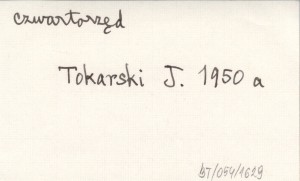 czwartorzęd
Tokarski J. 1950 a
bT/094/1629